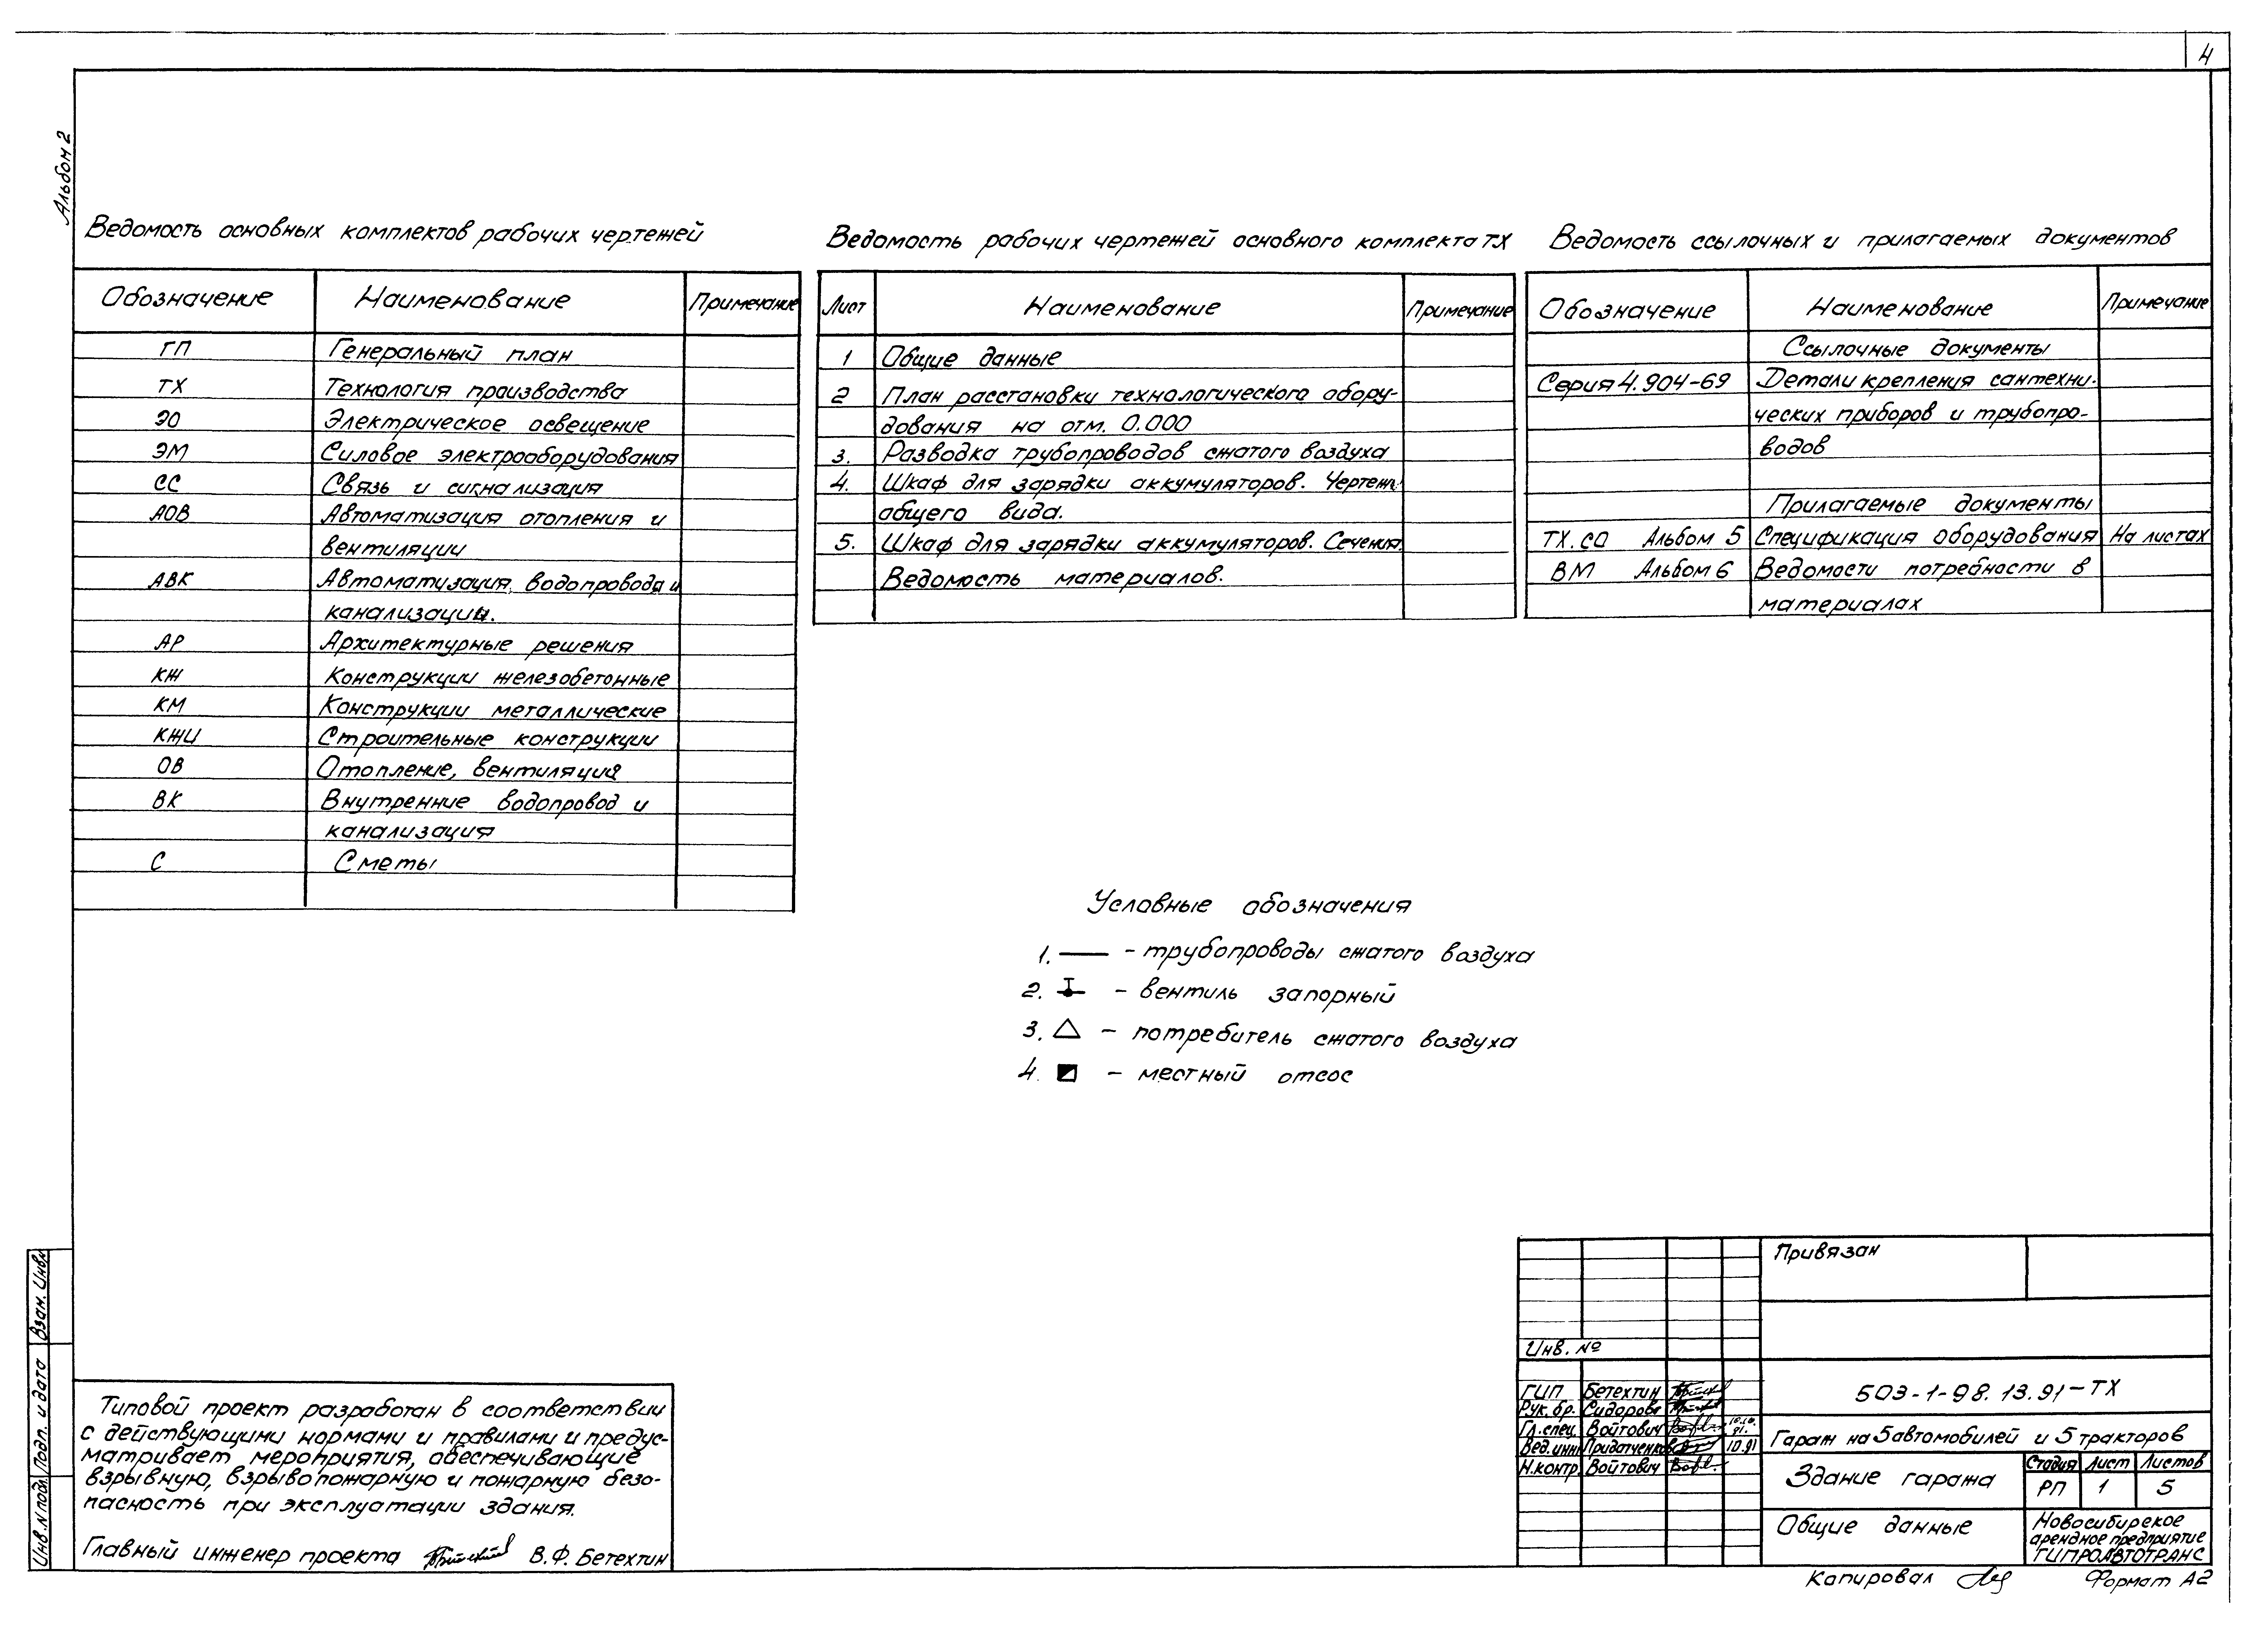 4
Альбом 2
Ведомость основных комплектов рабочих чертежей
Обозначение Наименование Примечание
ГП Генеральный план
ТХ Технология производства
ЭО Электрическое освещение
ЭМ Силовое электрооборудования
СС Связь и сигнализация
АОВ Автоматизация отопления и
вентиляции
АВК Автоматизация водопровода и
канализации.
АР Архитектурные решения
КЖ Конструкции железобетонные
КМ Конструкции металлические
КЖИ Строительные конструкции
ОВ Отопление, вентиляция
ВК Внутренние водопровод и
канализация
С Сметы
Ведомость рабочих чертежей основного комплекта ТХ
Лист Наименование Примечание
1 Общие данные
2 План расстановки технологического обору-
дования на отм. 0.000
3. Разводка трубопроводов сжатого воздуха
4. Шкаф для зарядки аккумуляторов. Чертежи
общего вида.
5. Шкаф для зарядки аккумуляторов. Сечения.
Ведомость материалов.
Ведомость ссылочных и прилагаемых документов
Обозначение Наименование Примечание
Ссылочные документы
Серия 4.904-69 Детали крепления сантехни-
ческих приборов и трубопро-
водов
Прилагаемые документы
ТХ.СО Альбом 5 Спецификация оборудования На листах
ВМ Альбом 6 Ведомости потребности в
материалах
Условные обозначения
1. - трубопроводы сжатого воздуха
2. - вентиль запорный
3. - потребитель сжатого воздуха
4. - местный отсос
Типовой проект разработан в соответствии
с действующими нормами и правилами и предус-
матривает мероприятия, обеспечивающие
взрывную, взрывопожарную и пожарную безо-
пасность при эксплуатации здания.
Главный инженер проекта В.Ф. Бетехтин
Взам. Инв.
Подп. и дата
Инв. N подл.
Привязан
Инв. №
ГИП Бетехтин
Рук. бр. Сидорова
Гл. спец. Войтович 10.10.91.
Вед. инж. Придатченко 10.91
Н.контр. Войтович
503-1-98.13.91-ТХ
Гараж на 5 автомобилей и 5 тракторов
Здание гаража
Стадия Лист Листов
РП 1 5
Общие данные
Новосибирское
арендное предприятие
ГИПРОАВТОТРАНС
Копировал Формат А2